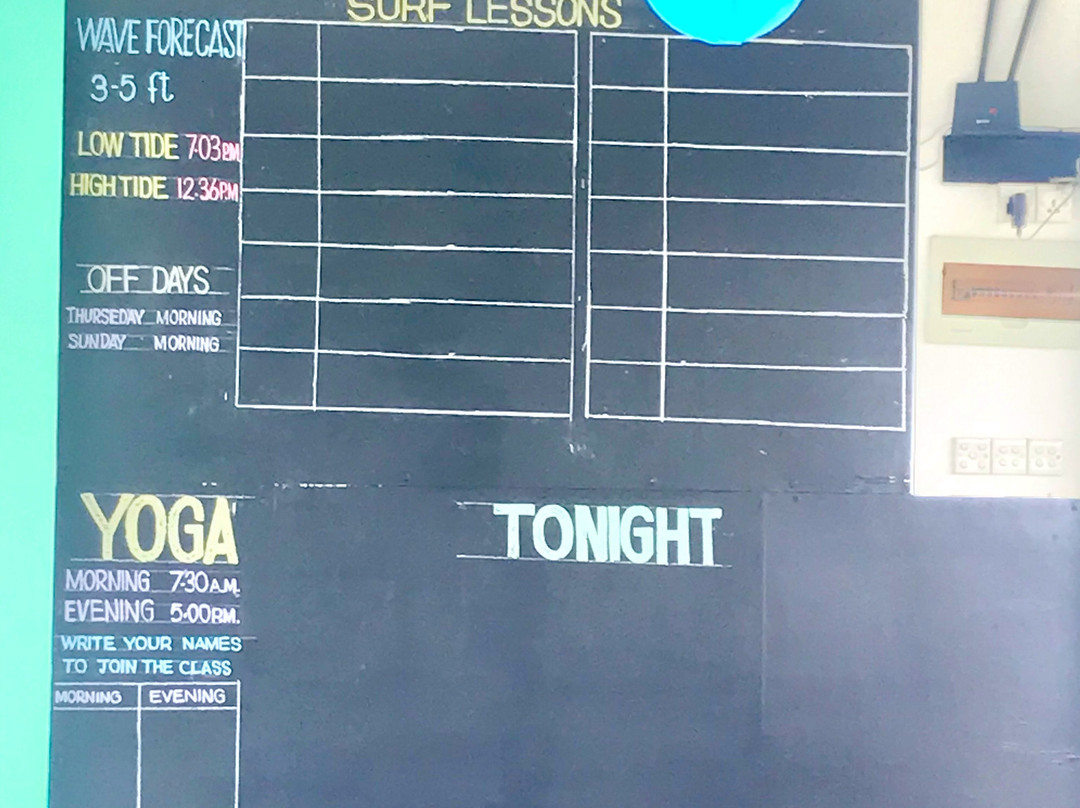 SURF LESSONS
WAVE FORECAST
3-5 ft
LOW TIDE 7.03 P.M
HIGH TIDE 12.36 P.M
OFF DAYS
THURSEDAY MORNING
SUNDAY MORNING
YOGA
MORNING 7.30 A.M.
EVENING 5.00 P.M.
WRITE YOUR NAMES
TO JOIN THE CLASS
MORNING EVENING
TONIGHT